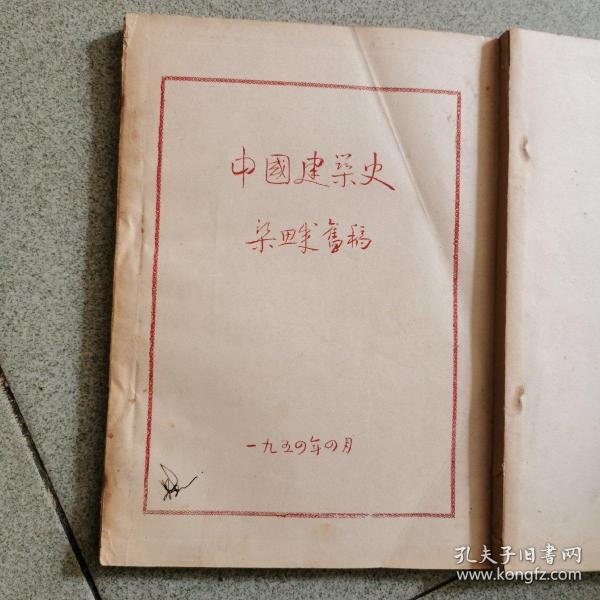 中國建築史
梁思成舊稿
一九五四年四月
孔夫子旧书网
www.kongfz.com